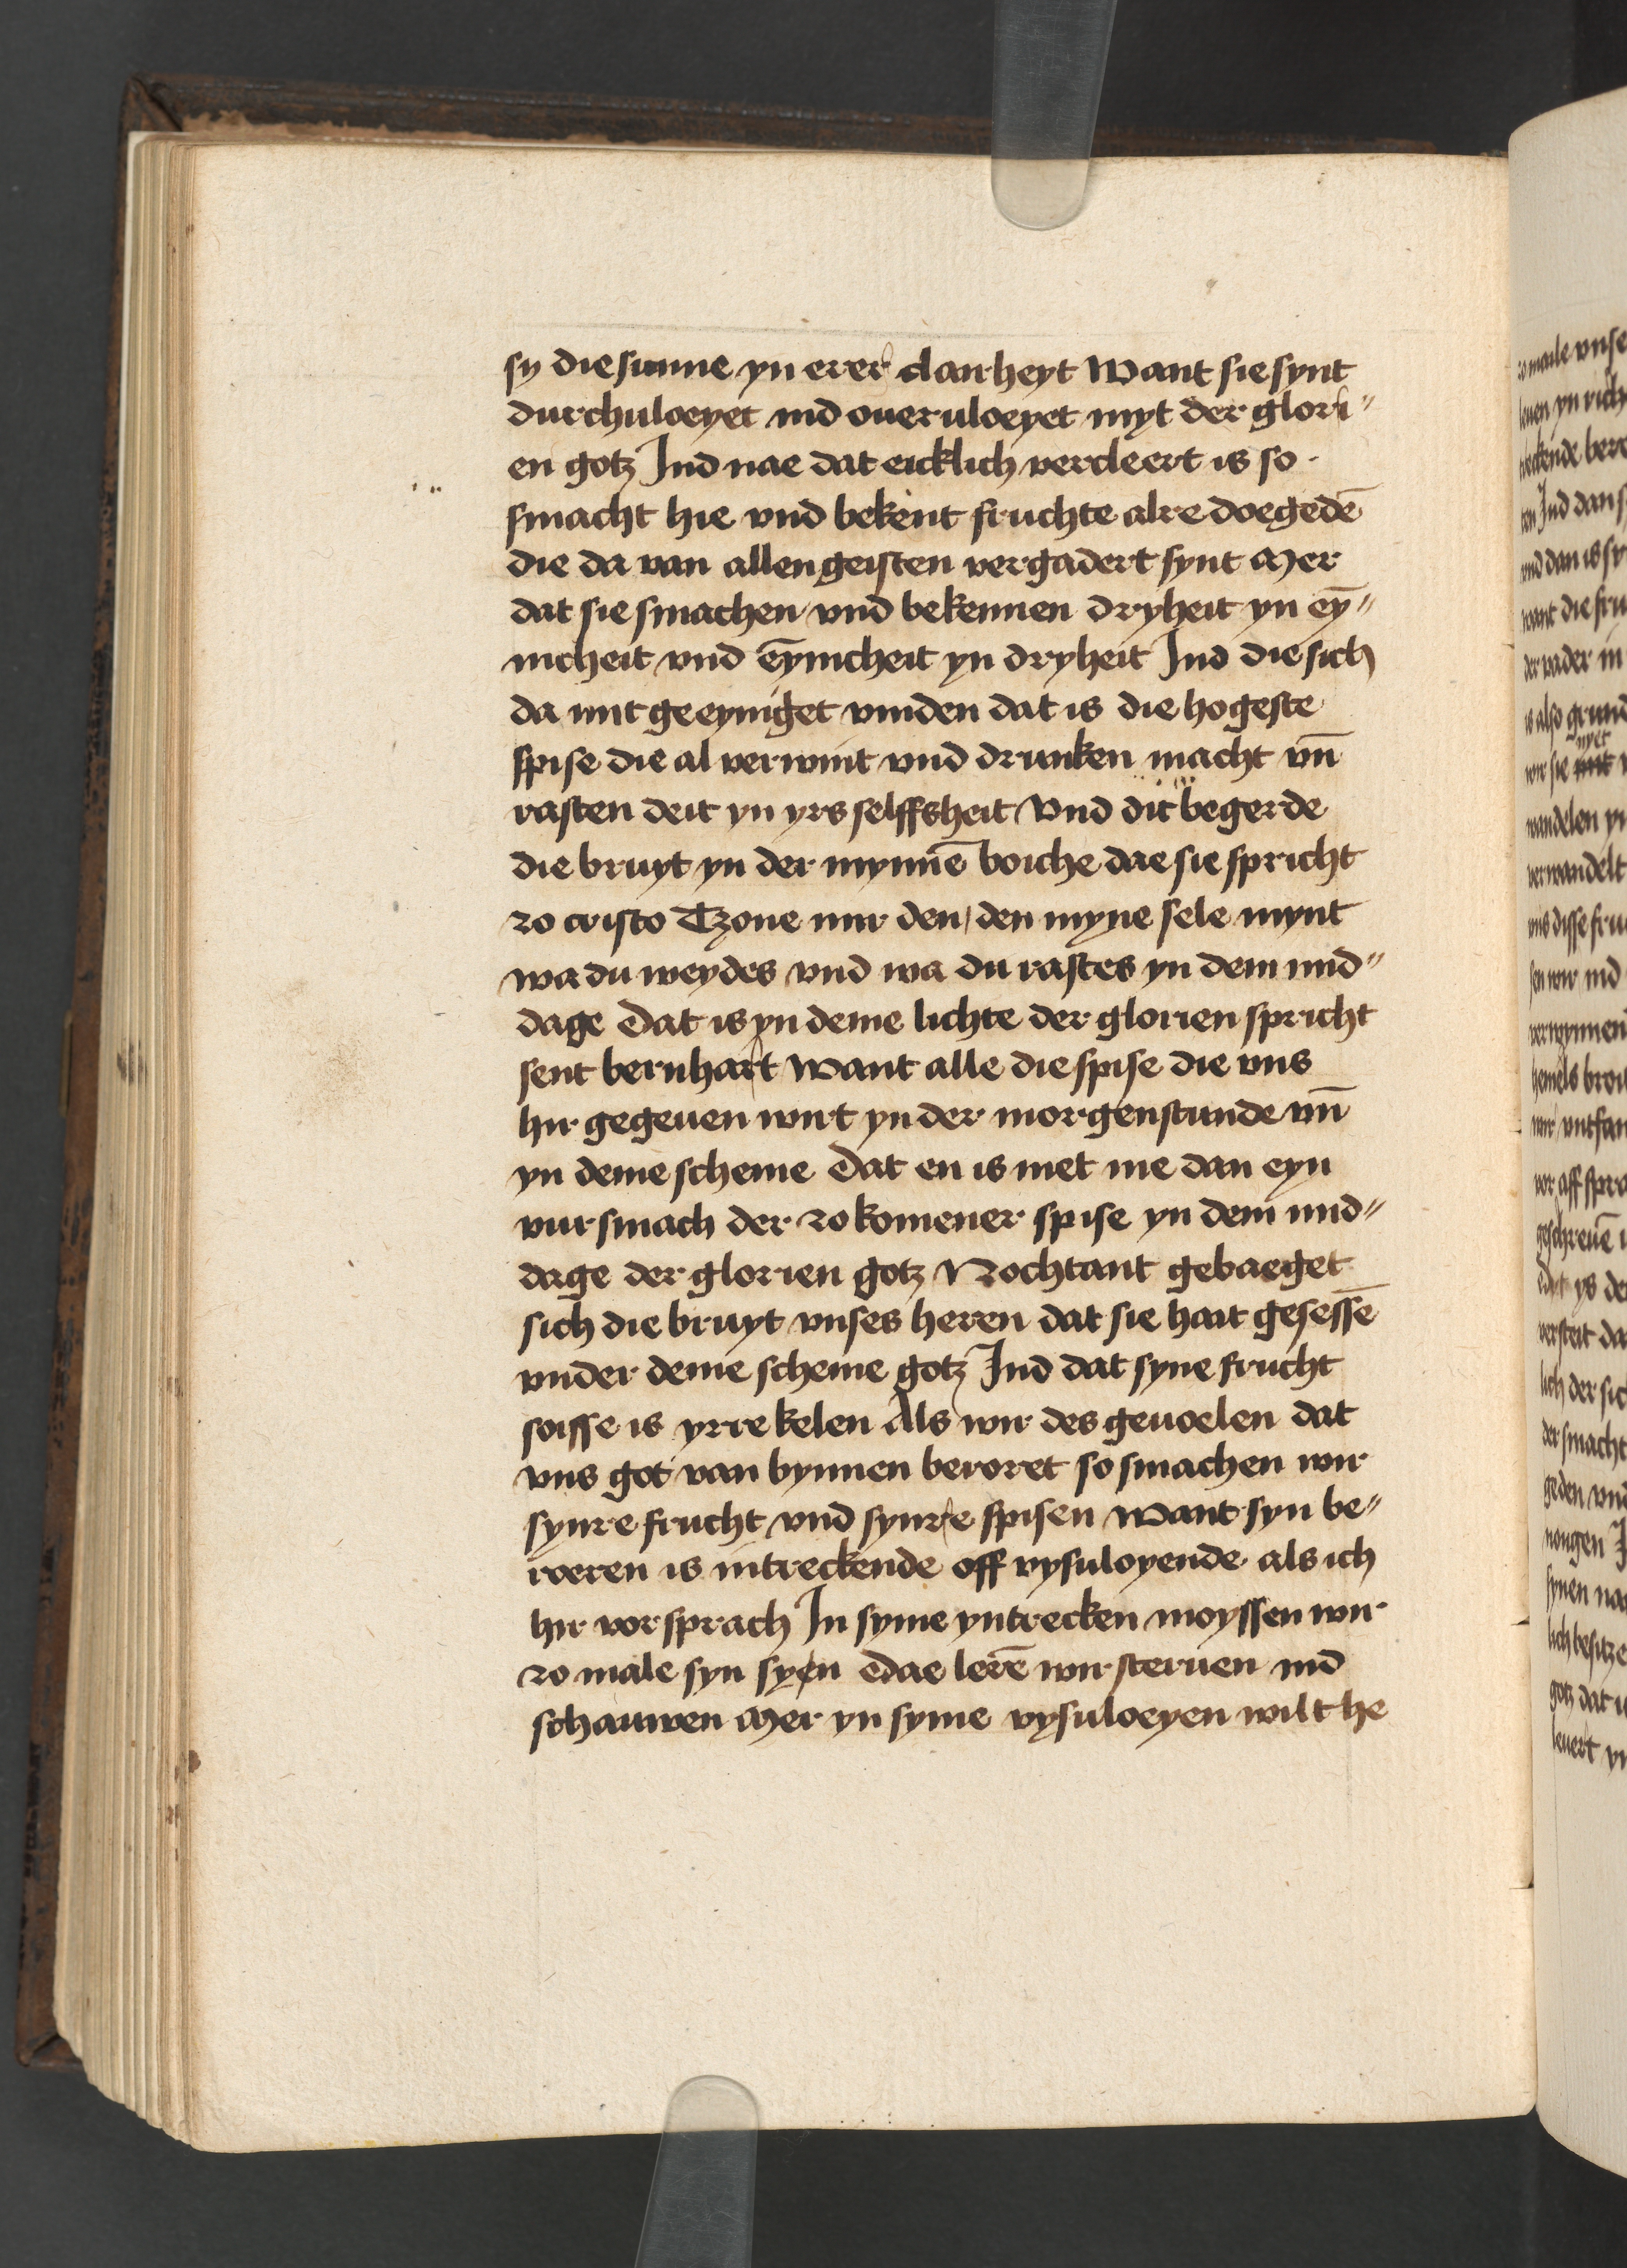 sy die sunne yn erer clarheyt Want sie synt
durchuloeyet ind oueruloeyet myt der glori〃
en gotz Ind nae dat eicklich vercleert is so
smacht hie vnd bekent fruchte alre doegedē
die da van allen geisten vergadert synt Mer
dat sie smachen vnd bekennen dryheit yn eȳ〃
nicheit vnd eȳnicheit yn dryheit Ind die sich
da mit geeyniget vinden dat is die hogeste
spise die al verwint vnd drunken macht vn̄
rasten deit yn yrs selffsheit Vnd dit begerde
die bruyt yn der mynnē boiche dae sie spricht
zo cristo Tzone mir den den myne sele mynt
wa du weydes vnd wa du rastes yn dem mid〃
dage dat is yn deme lichte der glorien spricht
sent bernhart Want alle die spise die vns
hir gegeuen wirt yn der morgenstunde vn̄
yn deme scheme dat en is niet me dan eyn
vursmach der zokomener spise yn dem mid〃
dage der glorien gotz Nochtant gebaeget
sich die bruyt vnses heren dat sie hait gesessē
vnder deme scheme gotz Ind dat syne frucht
soisse is yrre kelen Als wir des geuoelen dat
vns got van bynnen beroret so smachen wir
synre frucht vnd synre spisen Want syn be〃
roeren is intreckende off vysuloyende als ich
hir vor sprach In syme yntrecken moyssen wir
zo male syn syen dae lerē wir steruen ind
schauwen Mer yn syme vysuloeyen wilt he